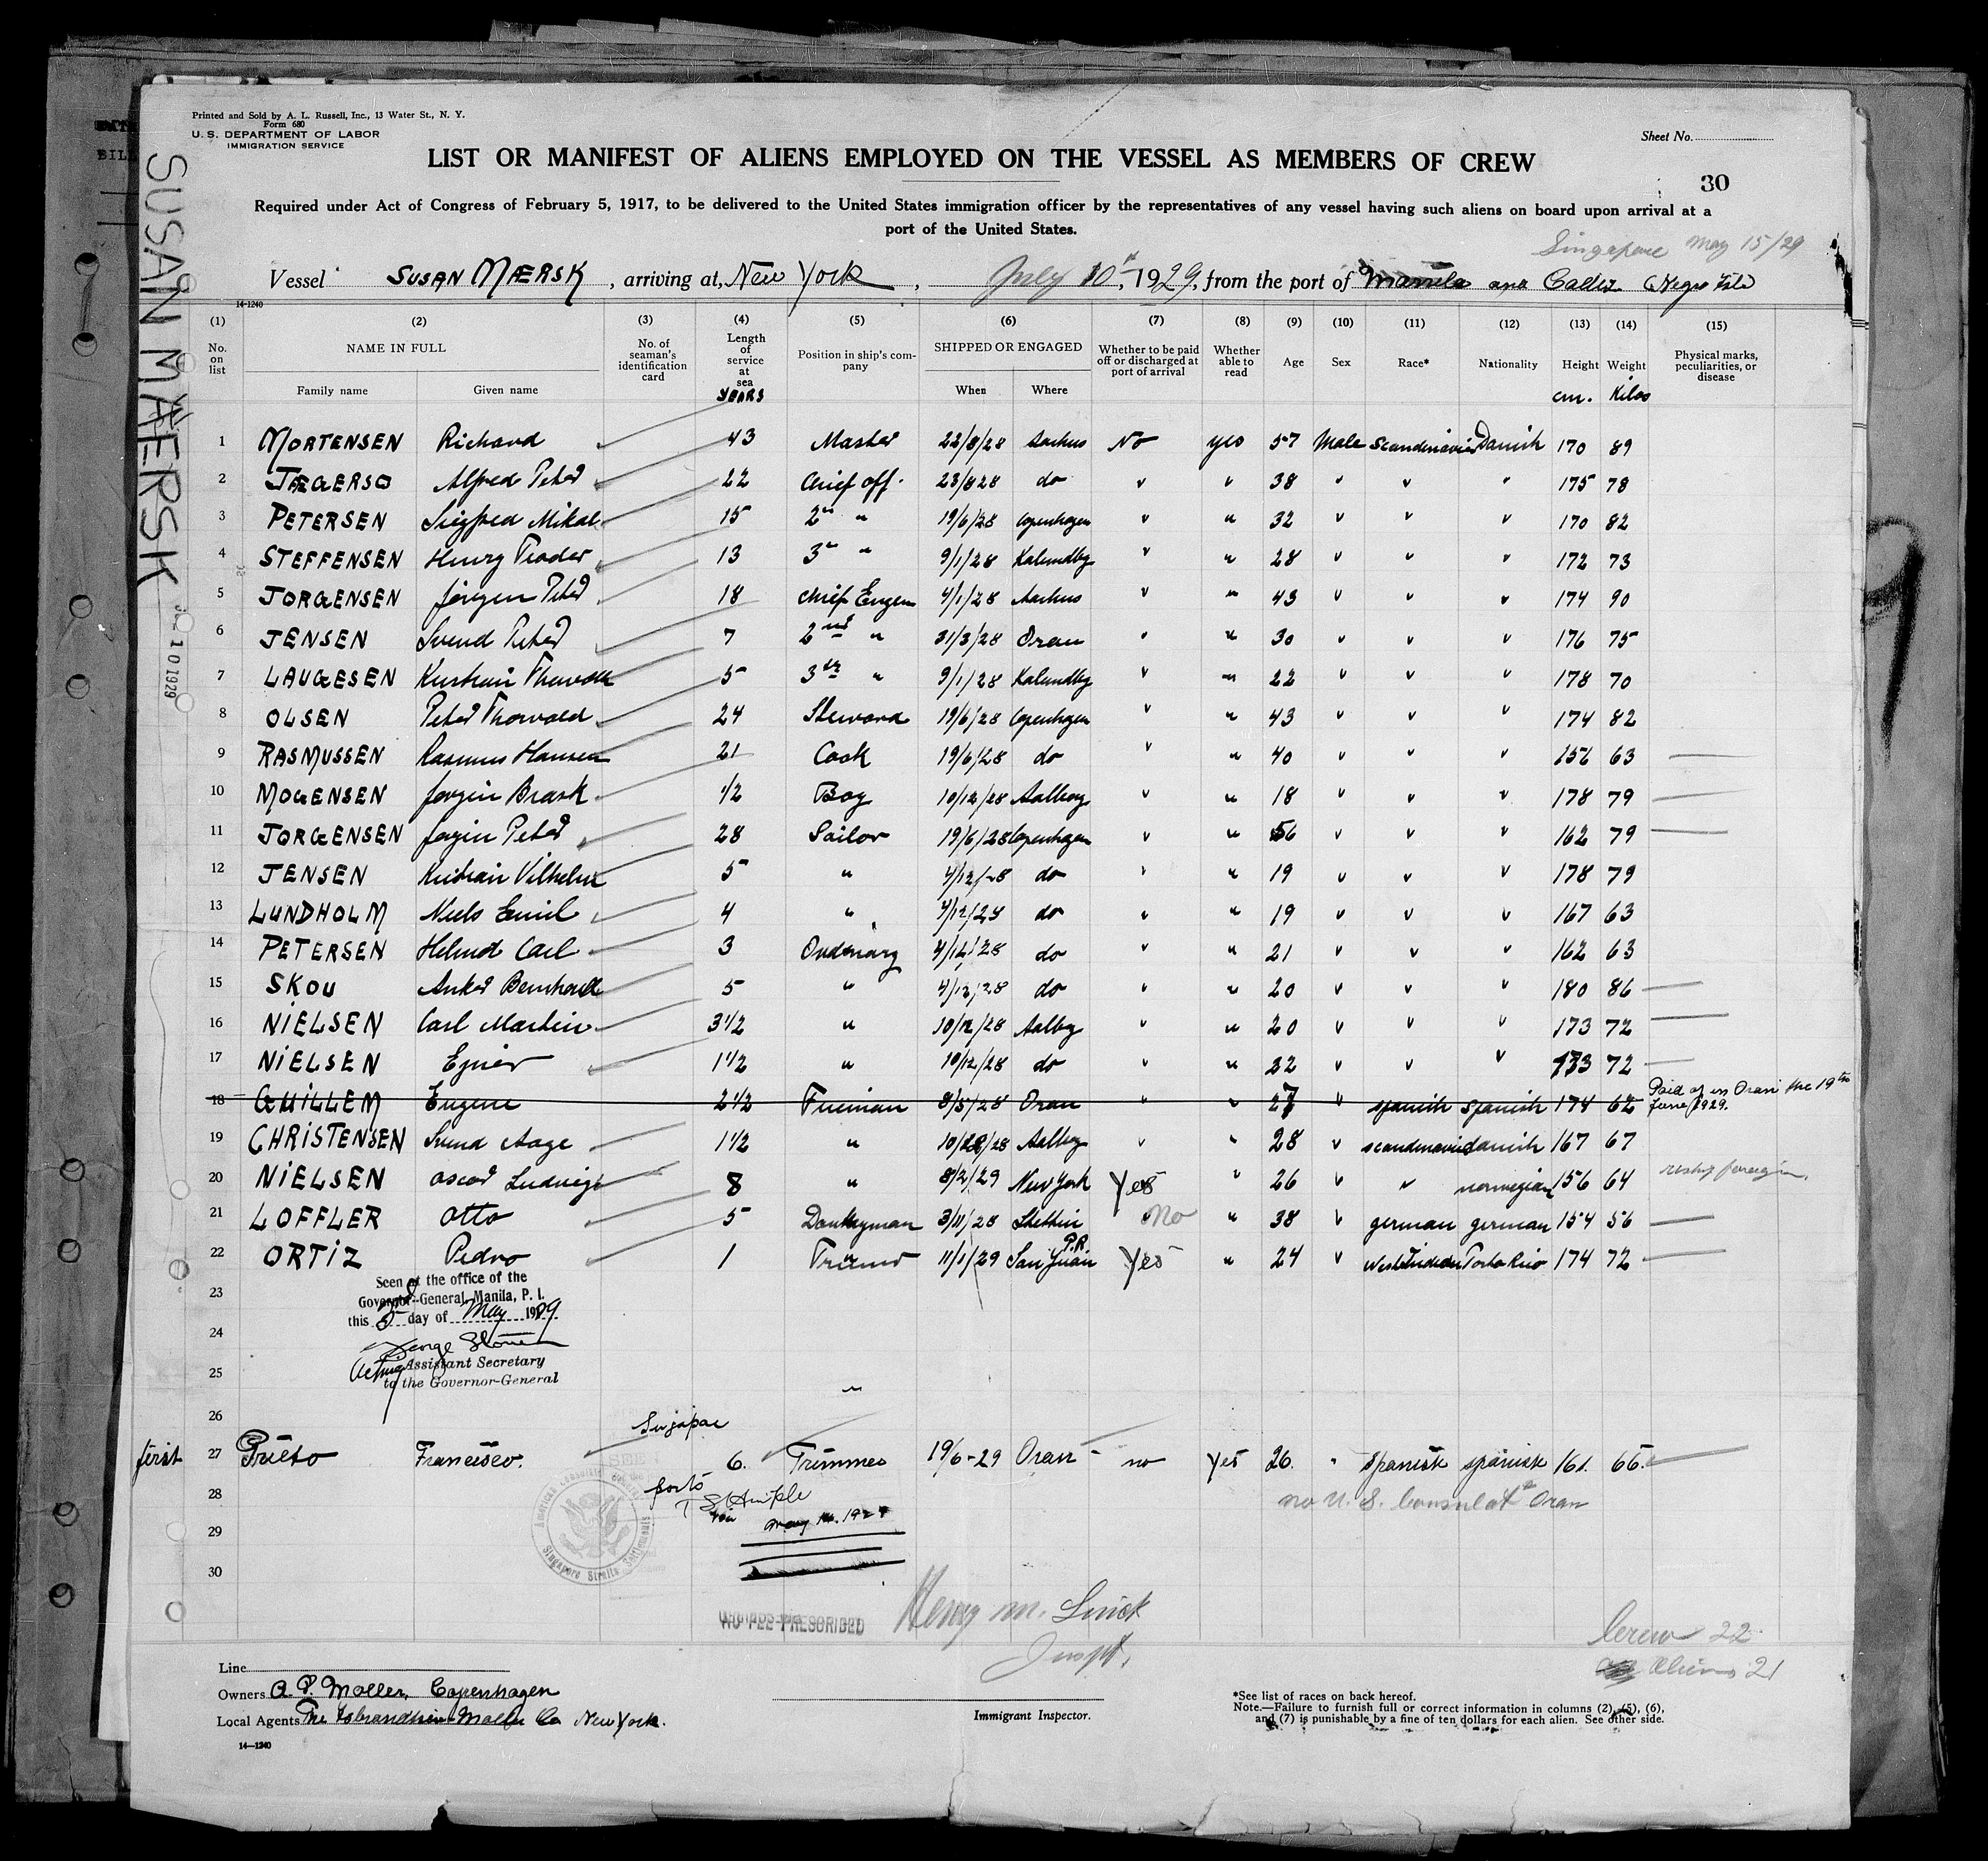 Printed and Sold by A. L. Russell, Inc., 13 Water St., N. Y.
Form 680
U. S. DEPARTMENT OF LABOR
IMMIGRATION SERVICE
Sheet No.
LIST OR MANIFEST OF ALIENS EMPLOYED ON THE VESSEL AS MEMBERS OF CREW
30
Required under Act of Congress of February 5, 1917, to be delivered to the United States immigration officer by the representatives of any vessel having such aliens on board upon arrival at a
port of the United States.
Singapore May 15/29
Vessel SUSAN MÆRSK, arriving at, New York, July 10th, 1929, from the port of Manila and
SUSAN MAERSK
10 1929
14-1240
(1) (2) (3) (4) (5) (6) (7) (8) (9) (10) (11) (12) (13) (14) (15)
No. on list NAME IN FULL No. of seaman's identification card Length of service at sea Position in ship's company SHIPPED OR ENGAGED Whether to be paid off or discharged at port of arrival Whether able to read Age Sex Race* Nationality Height Weight Physical marks, peculiarities, or disease
Family name Given name YEARS When Where cm. Kilos
1 MORTENSEN Richard 43 Master 22/8/28 Aarhus No yes 57 Male Scandinavien Danish 170 89
2 JÆGERSO Alfred Peter 22 Chief off. 23/8 28 do " " 38 " " " 175 78
3 PETERSEN Sigfred Mikal 15 2" " 19/6/28 Copenhagen " " 32 " " " 170 82
4 STEFFENSEN Henry Teodor 13 3" " 9/1/28 Kalundbg " " 28 " " " 172 73
5 JORGENSEN Jörgen Peter 18 Chief Engen 4/1/28 Aarhus " " 43 " " " 174 90
6 JENSEN Svend Peter 7 2nd " 31/3/28 Oran " " 30 " " " 176 75
7 LAUGESEN 5 3th " 9/1/28 Kalundbg " " 22 " " " 178 70
8 OLSEN Peter Thorvald 24 Steward 19/6/28 Copenhagen " " 43 " " " 174 82
9 RASMUSSEN Rasmus Hansen 21 Cook 19/6/28 do " " 40 " " " 156 63
10 MOGENSEN Jorgen Brask 1/2 Boy 10/12/28 Aalborg " " 18 " " " 178 79
11 JORGENSEN Jorgen Peter 28 Sailor 19/6/28 Copenhagen " " 56 " " " 162 79
12 JENSEN Kristian Vilhelm 5 " 4/12/28 do " " 19 " " " 178 79
13 LUNDHOLM Niels Emil 4 " 4/12/28 do " " 19 " " " 167 63
14 PETERSEN Helmut Carl 3 Ordinary 4/12/28 do " " 21 " " " 162 63
15 SKOU Anker Bernhard 5 " 4/12/28 do " " 20 " " " 180 86
16 NIELSEN Carl Martin 3 1/2 " 10/12/28 Aalbg " " 20 " " " 173 72
17 NIELSEN Ejner 1 1/2 " 10/12/28 do " " 22 " " " 173 72
18 GUILLEM Eugene 2 1/2 Fireman 8/5/28 Oran " " 27 " spanish spanish 174 62 Paid of in Oran the 19th June 1929.
19 CHRISTENSEN Svend Aage 1 1/2 " 10/12/28 Aalborg " " 28 " scandinavien danish 167 67
20 NIELSEN Oscar Ludvig 8 " 8/2/29 New York Yes " 26 " " norwegian 156 64 reship foreign.
21 LOFFLER Otto 5 Donkeyman 3/11/28 Stettin No " 38 " german german 154 56
22 ORTIZ Pedro 1 Trimmer 11/1/29 San Juan P.R. Yes " 24 " West Indian Porto Rico 174 72
23
Seen at the office of the
Governor-General, Manila, P. I.
this 3rd day of May 1929
24
George
Acting Assistant Secretary
to the Governor-General
25
26
Singapore
first 27 Prieto Francisco. 6. Trimmer 19/6-29 Oran no yes 26. " spanish spanish 161 66.
28
no U. S. Consulat Oran
ports
29
May 14. 1929
30
American Consulate
Singapore Straits Settlements
NO FEE PRESCRIBED
Henry M.
Inspt.
Crew 22
Aliens 21
Line
Owners A. P. Moller, Copenhagen
Local Agents The Isbrandtsen-Moller Co New York.
Immigrant Inspector.
*See list of races on back hereof.
Note.—Failure to furnish full or correct information in columns (2), (5), (6),
and (7) is punishable by a fine of ten dollars for each alien. See other side.
14—1240